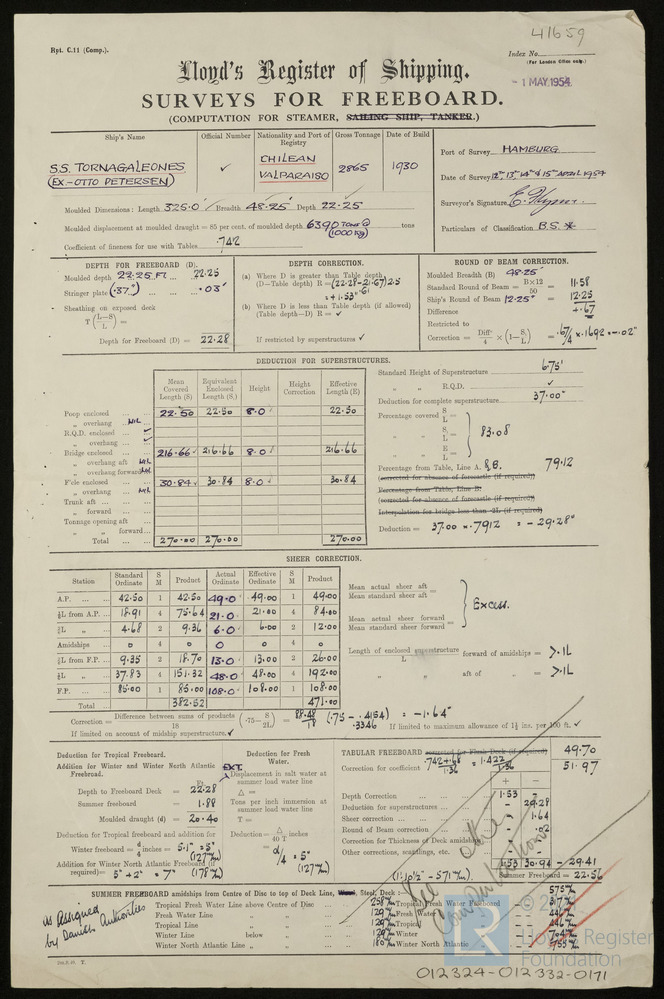 41659
Rpt. C.11 (Comp.).
Index No.
(For London Office only.)
- 1 MAY. 1954
Lloyd's Register of Shipping.
SURVEYS FOR FREEBOARD.
(COMPUTATION FOR STEAMER, SAILING SHIP, TANKER.)
Ship's Name Official Number Nationality and Port of Registry Gross Tonnage Date of Build
S.S. TORNAGALEONES (EX.-OTTO PETERSEN) ✓ CHILEAN VALPARAISO 2865 1930
Port of Survey HAMBURG
Date of Survey 12th 13th 14th & 15th APRIL 1954
Surveyor's Signature
Particulars of Classification B.S. *
Moulded Dimensions: Length 325.0' Breadth 48.25' Depth 22.25
Moulded displacement at moulded draught = 85 per cent. of moulded depth 6390 TONS @ (1000 Kg) tons
Coefficient of fineness for use with Tables .742
DEPTH FOR FREEBOARD (D).
Moulded depth 22.25 FT. 22.25
Stringer plate (.37") .03'
Sheathing on exposed deck
T (L−S / L) =
Depth for Freeboard (D) = 22.28
DEPTH CORRECTION.
(a) Where D is greater than Table depth
(D−Table depth) R = (22.28-21.67) 2.5
= + 1.53"
(b) Where D is less than Table depth (if allowed)
(Table depth−D) R = ✓
If restricted by superstructures ✓
ROUND OF BEAM CORRECTION.
Moulded Breadth (B) 48.25'
Standard Round of Beam = B×12 / 50 = 11.58
Ship's Round of Beam 12.25" = 12.25
Difference +.67
Restricted to
Correction = Diffce / 4 × (1−S₁/L) = .67/4 × .1692 = -.02"
DEDUCTION FOR SUPERSTRUCTURES.
Mean Covered Length (S) Equivalent Enclosed Length (S₁) Height Height Correction Effective Length (E)
Poop enclosed 22.50 22.50 8.0' 22.50
„ overhang NIL
R.Q.D. enclosed ✓
„ overhang ✓
Bridge enclosed 216.66 216.66 8.0' 216.66
„ overhang aft NIL
„ overhang forward NIL
F'cle enclosed 30.84 30.84 8.0' 30.84
„ overhang NIL
Trunk aft
„ forward
Tonnage opening aft
„ „ forward
Total 270.00 270.00 270.00
Standard Height of Superstructure 6.75'
„ „ R.Q.D. ✓
Deduction for complete superstructure 37.00"
Percentage covered S/L =
„ „ S₁/L = 83.08
„ „ E/L =
Percentage from Table, Line A. & B. 79.12
(corrected for absence of forecastle (if required))
Percentage from Table, Line B.
(corrected for absence of forecastle (if required))
Interpolation for bridge less than .2L (if required)
Deduction = 37.00 × .7912 = - 29.28"
SHEER CORRECTION.
Station Standard Ordinate S M Product Actual Ordinate Effective Ordinate S M Product
A.P. 42.50 1 42.50 49.0 49.00 1 49.00
⅙L from A.P. 18.91 4 75.64 21.0 21.00 4 84.00
⅓L „ 4.68 2 9.36 6.0 6.00 2 12.00
Amidships 0 4 0 0 0 4 0
⅓L from F.P. 9.35 2 18.70 13.0 13.00 2 26.00
⅙L „ 37.83 4 151.32 48.0 48.00 4 192.00
F.P. 85.00 1 85.00 108.0 108.00 1 108.00
Total 382.52 471.00
Mean actual sheer aft
Mean standard sheer aft =
Mean actual sheer forward
Mean standard sheer forward =
Excess.
Length of enclosed superstructure forward of amidships / L = >.1L
„ aft of „ = >.1L
Correction = Difference between sums of products / 18 (.75− S/2L) = 88.48 / 18 (.75 - .4154) .3346 = -1.64"
If limited on account of midship superstructure. ✓ If limited to maximum allowance of 1½ ins. per 100 ft. ✓
Deduction for Tropical Freeboard.
Addition for Winter and Winter North Atlantic Freeboard.
Ft.
Depth to Freeboard Deck = 22.28
Summer freeboard = 1.88
Moulded draught (d) = 20.40
Deduction for Tropical freeboard and addition for
Winter freeboard = d/4 inches = 5.1" = 5" (127 m/m)
Addition for Winter North Atlantic Freeboard (if required) = 5" + 2" = 7" (178 m/m)
Deduction for Fresh Water.
EXT.
Displacement in salt water at summer load water line
Δ =
Tons per inch immersion at summer load water line
T =
Deduction = Δ / 40 T inches
= d/4 = 5" (127 m/m)
TABULAR FREEBOARD corrected for Flush Deck (if required) 49.70
Correction for coefficient .742+.68 / 1.36 = 1.422 / 1.36 51.97
+ −
Depth Correction 1.53 -
Deduction for superstructures - 29.28
Sheer correction - 1.64
Round of Beam correction - .02
Correction for Thickness of Deck amidships - -
Other corrections, scantlings, etc. - -
1.53 30.94 - 29.41
(1'-10½" - 571 m/m.) Summer Freeboard = 22.56
See other Computation
SUMMER FREEBOARD amidships from Centre of Disc to top of Deck Line, Wood, Steel, Deck :— 575 m/m
Tropical Fresh Water Line above Centre of Disc 258 m/m Tropical Fresh Water Freeboard 317 m/m
Fresh Water Line „ 129 m/m Fresh Water „
Tropical Line „ 129 m/m Tropical „
Winter Line below „ 129 m/m Winter „ 704 m/m
Winter North Atlantic Line „ „ 180 m/m Winter North Atlantic „ 755 m/m
as Assigned by Danish Authorities
© 20
LR
Lloyd's Register Foundation
012324-012332-0171